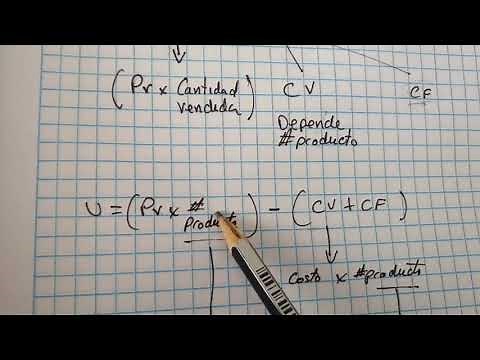 (Pr x Cantidad vendida) CV CF
Depende
#producto
U = (Pr x # Producto) - (CV + CF)
Costo x #producto